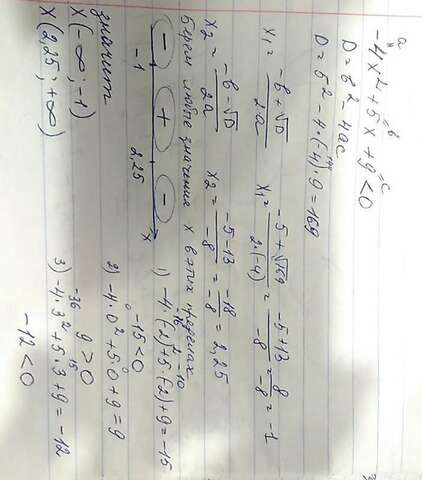 a b c
-4x² + 5x + 9 < 0
D = b² - 4ac
D = 5² - 4·(-4)·9 = 169
x₁ = (-b + √D)/2a x₁ = (-5 + √169)/(2·(-4)) = (-5+13)/(-8) = 8/(-8) = -1
x₂ = (-b - √D)/2a x₂ = (-5-13)/(-8) = (-18)/(-8) = 2,25
Берем любые значения x в этих пределах
- + -
-1 2,25 x
1) -4·(-2)² + 5·(-2) + 9 = -15
-16 -10
-15 < 0
2) -4·0² + 5·0 + 9 = 9
0 0
9 > 0
3) -4·3² + 5·3 + 9 = -12
-36 15
-12 < 0
значит
x(-∞; -1)
x(2,25; +∞)